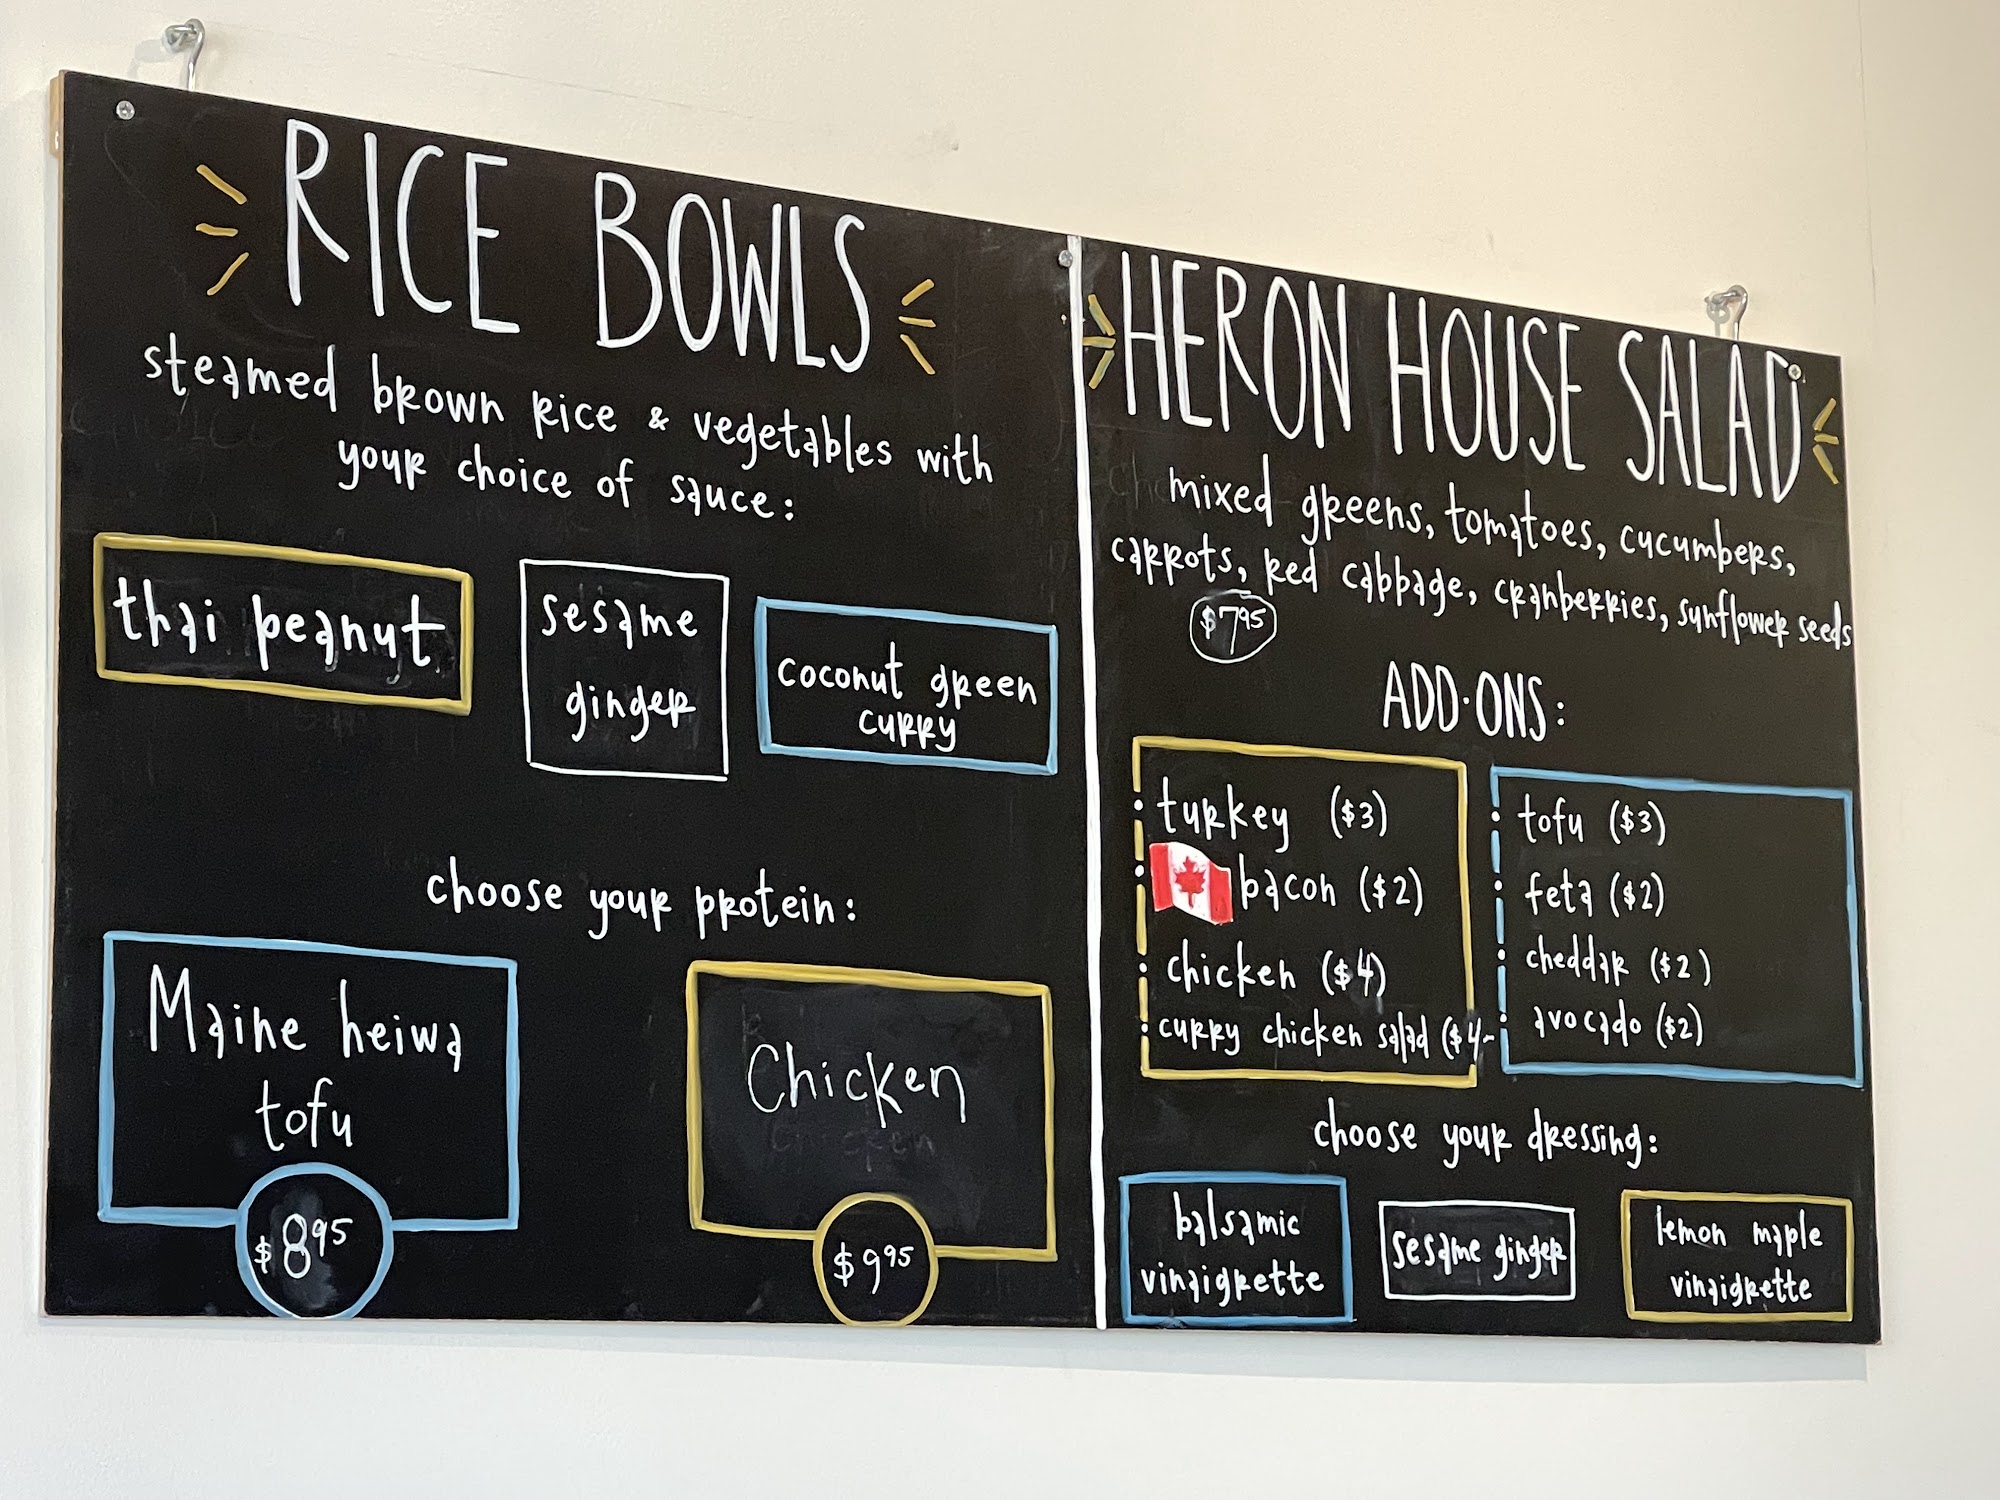 RICE BOWLS
steamed brown rice & vegetables with
your choice of sauce:
thai peanut
sesame
ginger
coconut green
curry
choose your protein:
Maine heiwa
tofu
$8.95
Chicken
$9.95
HERON HOUSE SALAD
mixed greens, tomatoes, cucumbers,
carrots, red cabbage, cranberries, sunflower seeds
$7.95
ADD·ONS:
• turkey ($3)
• bacon ($2)
• chicken ($4)
• curry chicken salad ($4
• tofu ($3)
• feta ($2)
• cheddar ($2)
• avocado ($2)
choose your dressing:
balsamic
vinaigrette
sesame ginger
lemon maple
vinaigrette